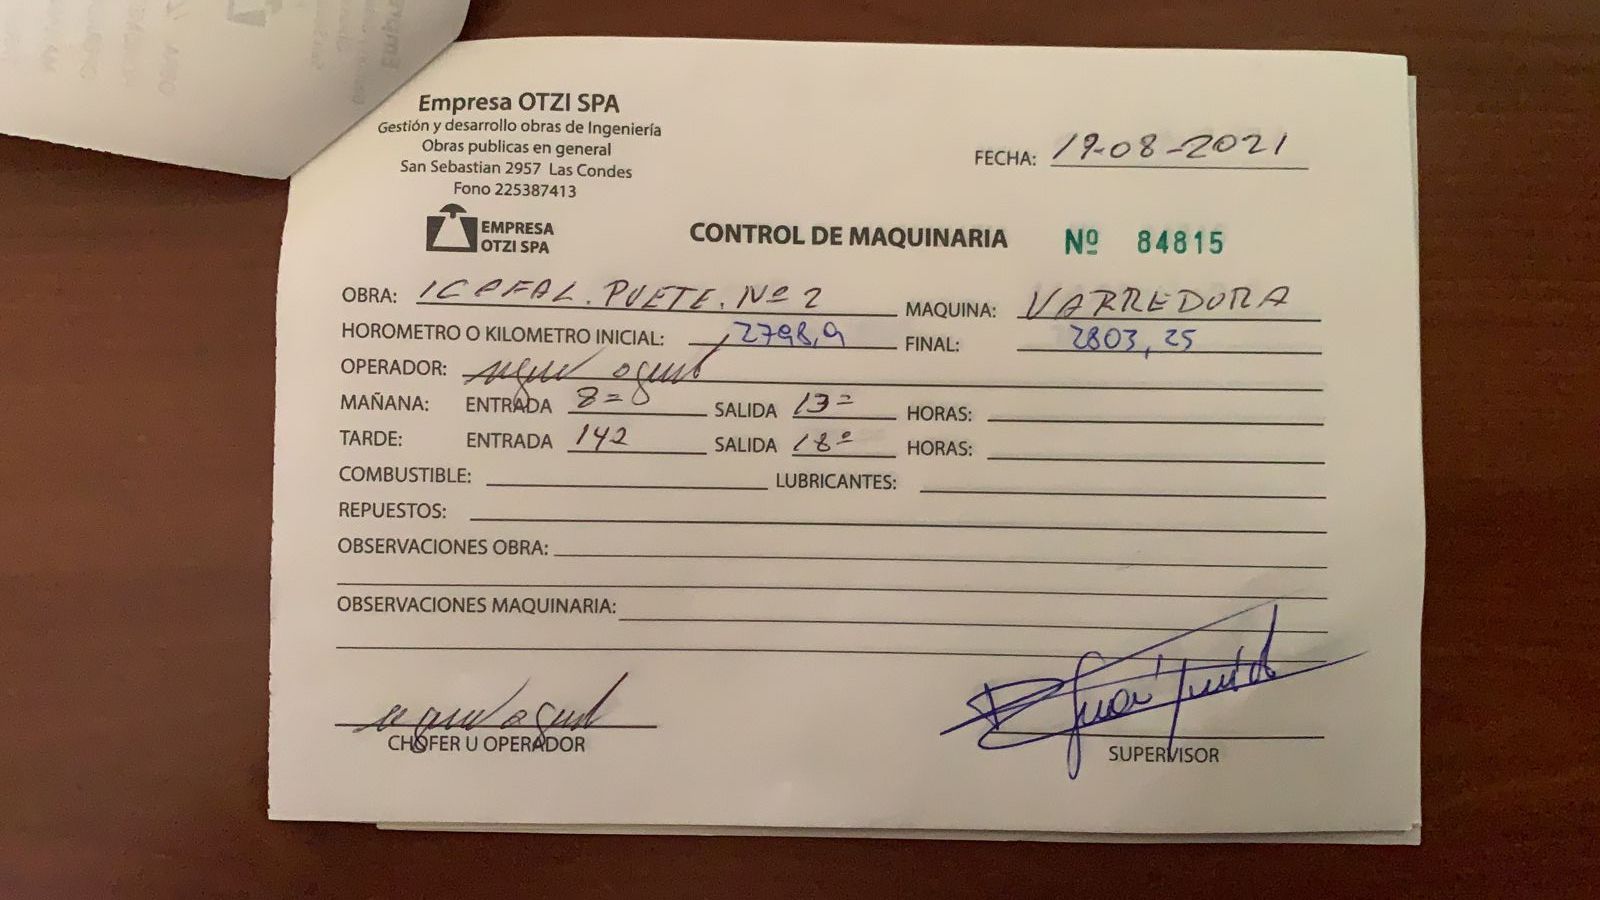 Empresa OTZI SPA
Gestión y desarrollo obras de Ingeniería
Obras publicas en general
San Sebastian 2957 Las Condes
Fono 225387413
FECHA: 19-08-2021
EMPRESA
OTZI SPA
CONTROL DE MAQUINARIA Nº 84815
OBRA: PUETE. Nº 2 MAQUINA: VARREDORA
HOROMETRO O KILOMETRO INICIAL: 2798,9 FINAL: 2803,25
OPERADOR:
MAÑANA: ENTRADA 8= SALIDA 13= HORAS:
TARDE: ENTRADA 142 SALIDA 18º HORAS:
COMBUSTIBLE: LUBRICANTES:
REPUESTOS:
OBSERVACIONES OBRA:
OBSERVACIONES MAQUINARIA:
CHOFER U OPERADOR
SUPERVISOR